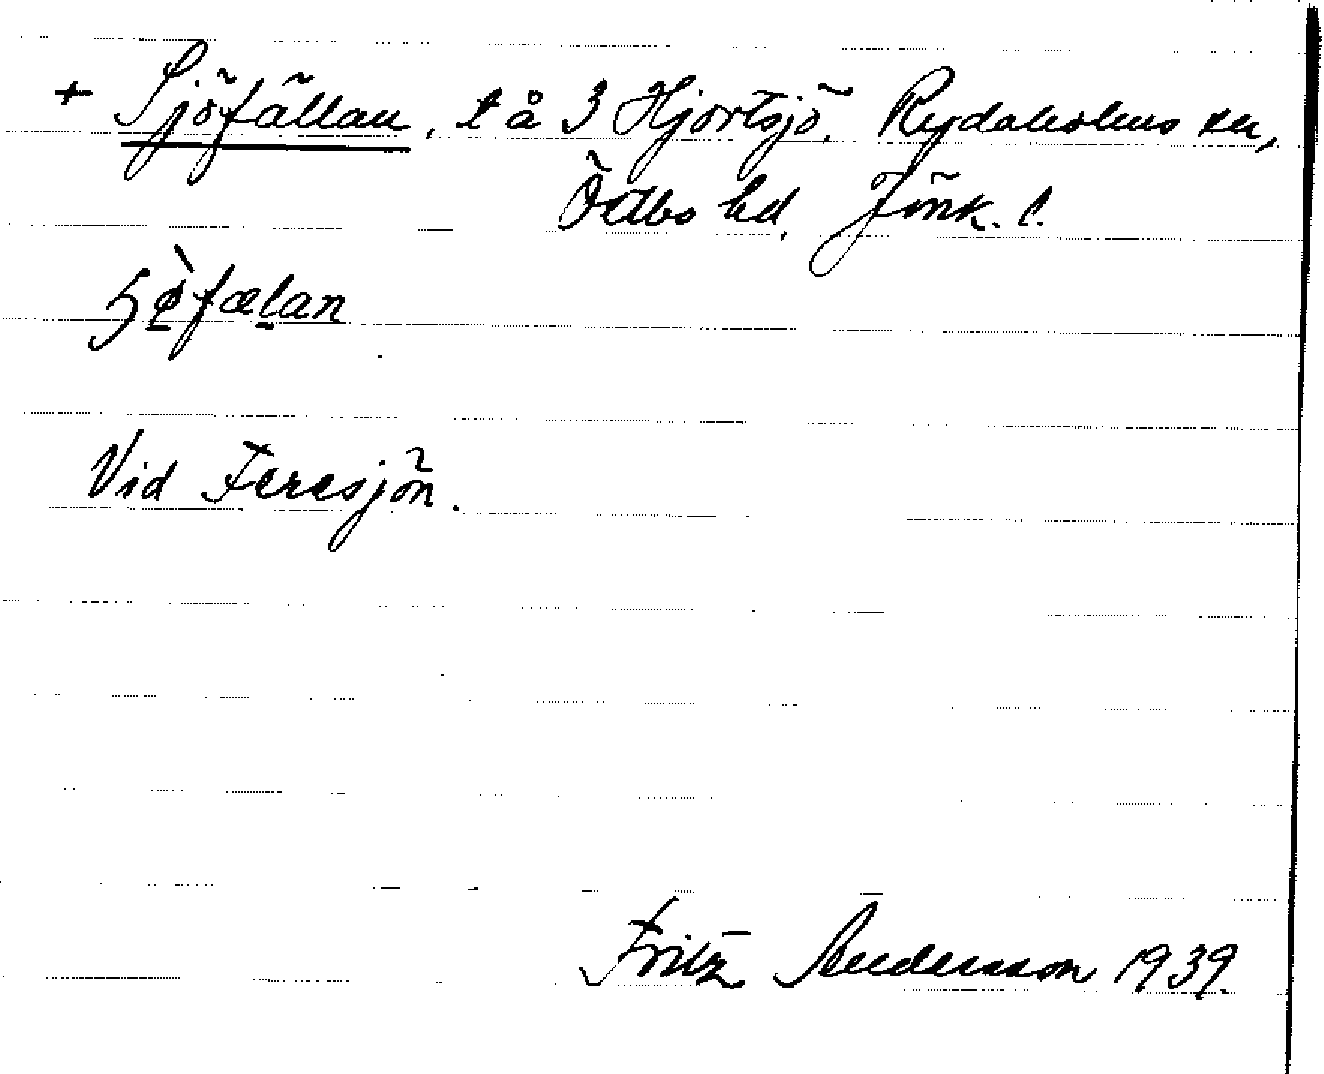 + Sjöfällan, t å 3 Hjortsjö, Rydaholms sn,
Östbo hd, Jönk. l.
ɧø̀fælan
Vid Feresjön.
Fritz Andersson 1939.